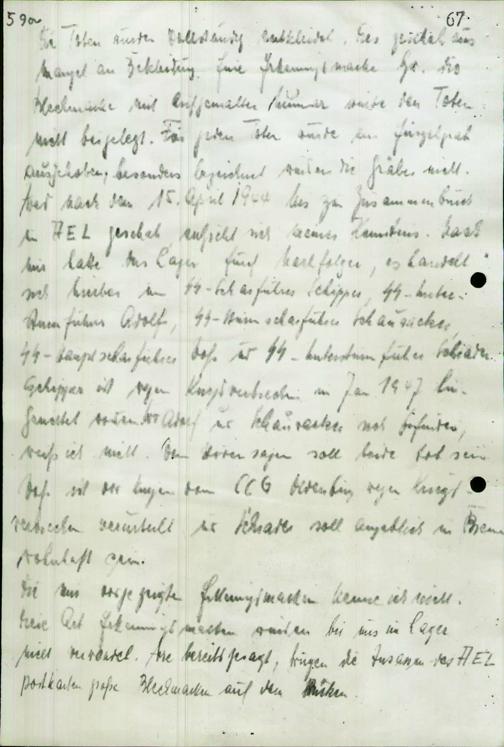 59a 67.
Die Toten wurden vollständig entkleidet. Dies geschah aus
Mangel an Bekleidung. Eine Erkennungsmarke bzw. die
Blechmarke mit aufgemalter Nummer wurde den Toten
nicht beigelegt. Für jeden Toten wurde ein Einzelgrab
ausgehoben, besonders bezeichnet wurden die Gräber nicht.
Was nach dem 15. April 1944 bis zum Zusammenbruch
im AEL geschah, entzieht sich meiner Kenntnis. Nach
mir hatte das Lager fünf Nachfolger, es handelt
sich hierbei um SS-Scharführer Schipper, SS-Unter-
sturmführer Adolf, SS-Sturmscharführer Schauwacker,
SS-Hauptscharführer und SS-Untersturmführer Schrader.
Schipper ist wegen Kriegsverbrechen im Jan 1947 hin-
gerichtet worden. Wo Adolf und Schauwacker sich befinden,
weiß ich nicht. Vom Hörensagen soll beide tot sein
ist vor kurzem vom CCG Oldenburg wegen Kriegs-
verbrechen verurteilt und Schrader soll angeblich in Bremen
wohnhaft sein.
Die mir vorgezeigten Erkennungsmarken kenne ich nicht.
Diese Art Erkennungsmarken wurden bei uns im Lager
nicht verwandt. Wie bereits gesagt, trugen die Insassen des AEL
postkarten große Blechmarken auf dem Rücken.